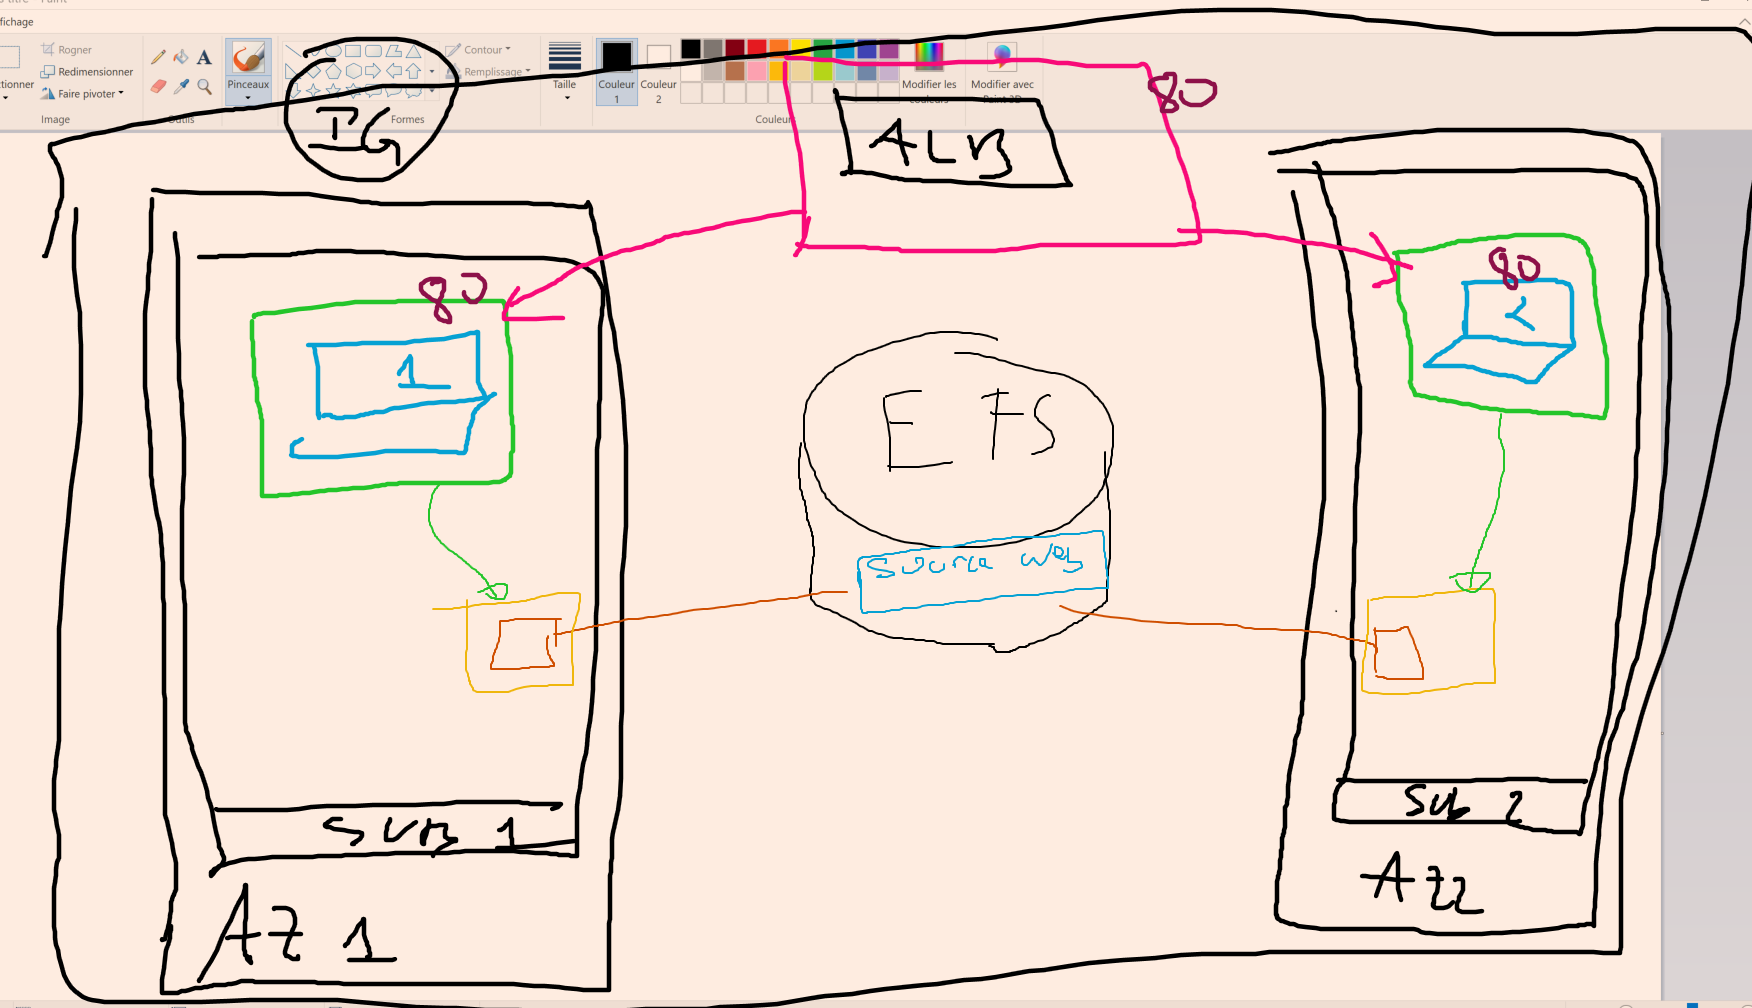 fichage
Rogner
Redimensionner
Faire pivoter
Image
Outils
Pinceaux
Formes
Contour
Remplissage
Taille
Couleur
1
Couleur
2
Couleurs
Modifier les
couleurs
Modifier avec
Paint 3D
IG
ALB
80
80
1
80
2
EFS
Source web
SUB 1
AZ 1
Sub 2
AZ2